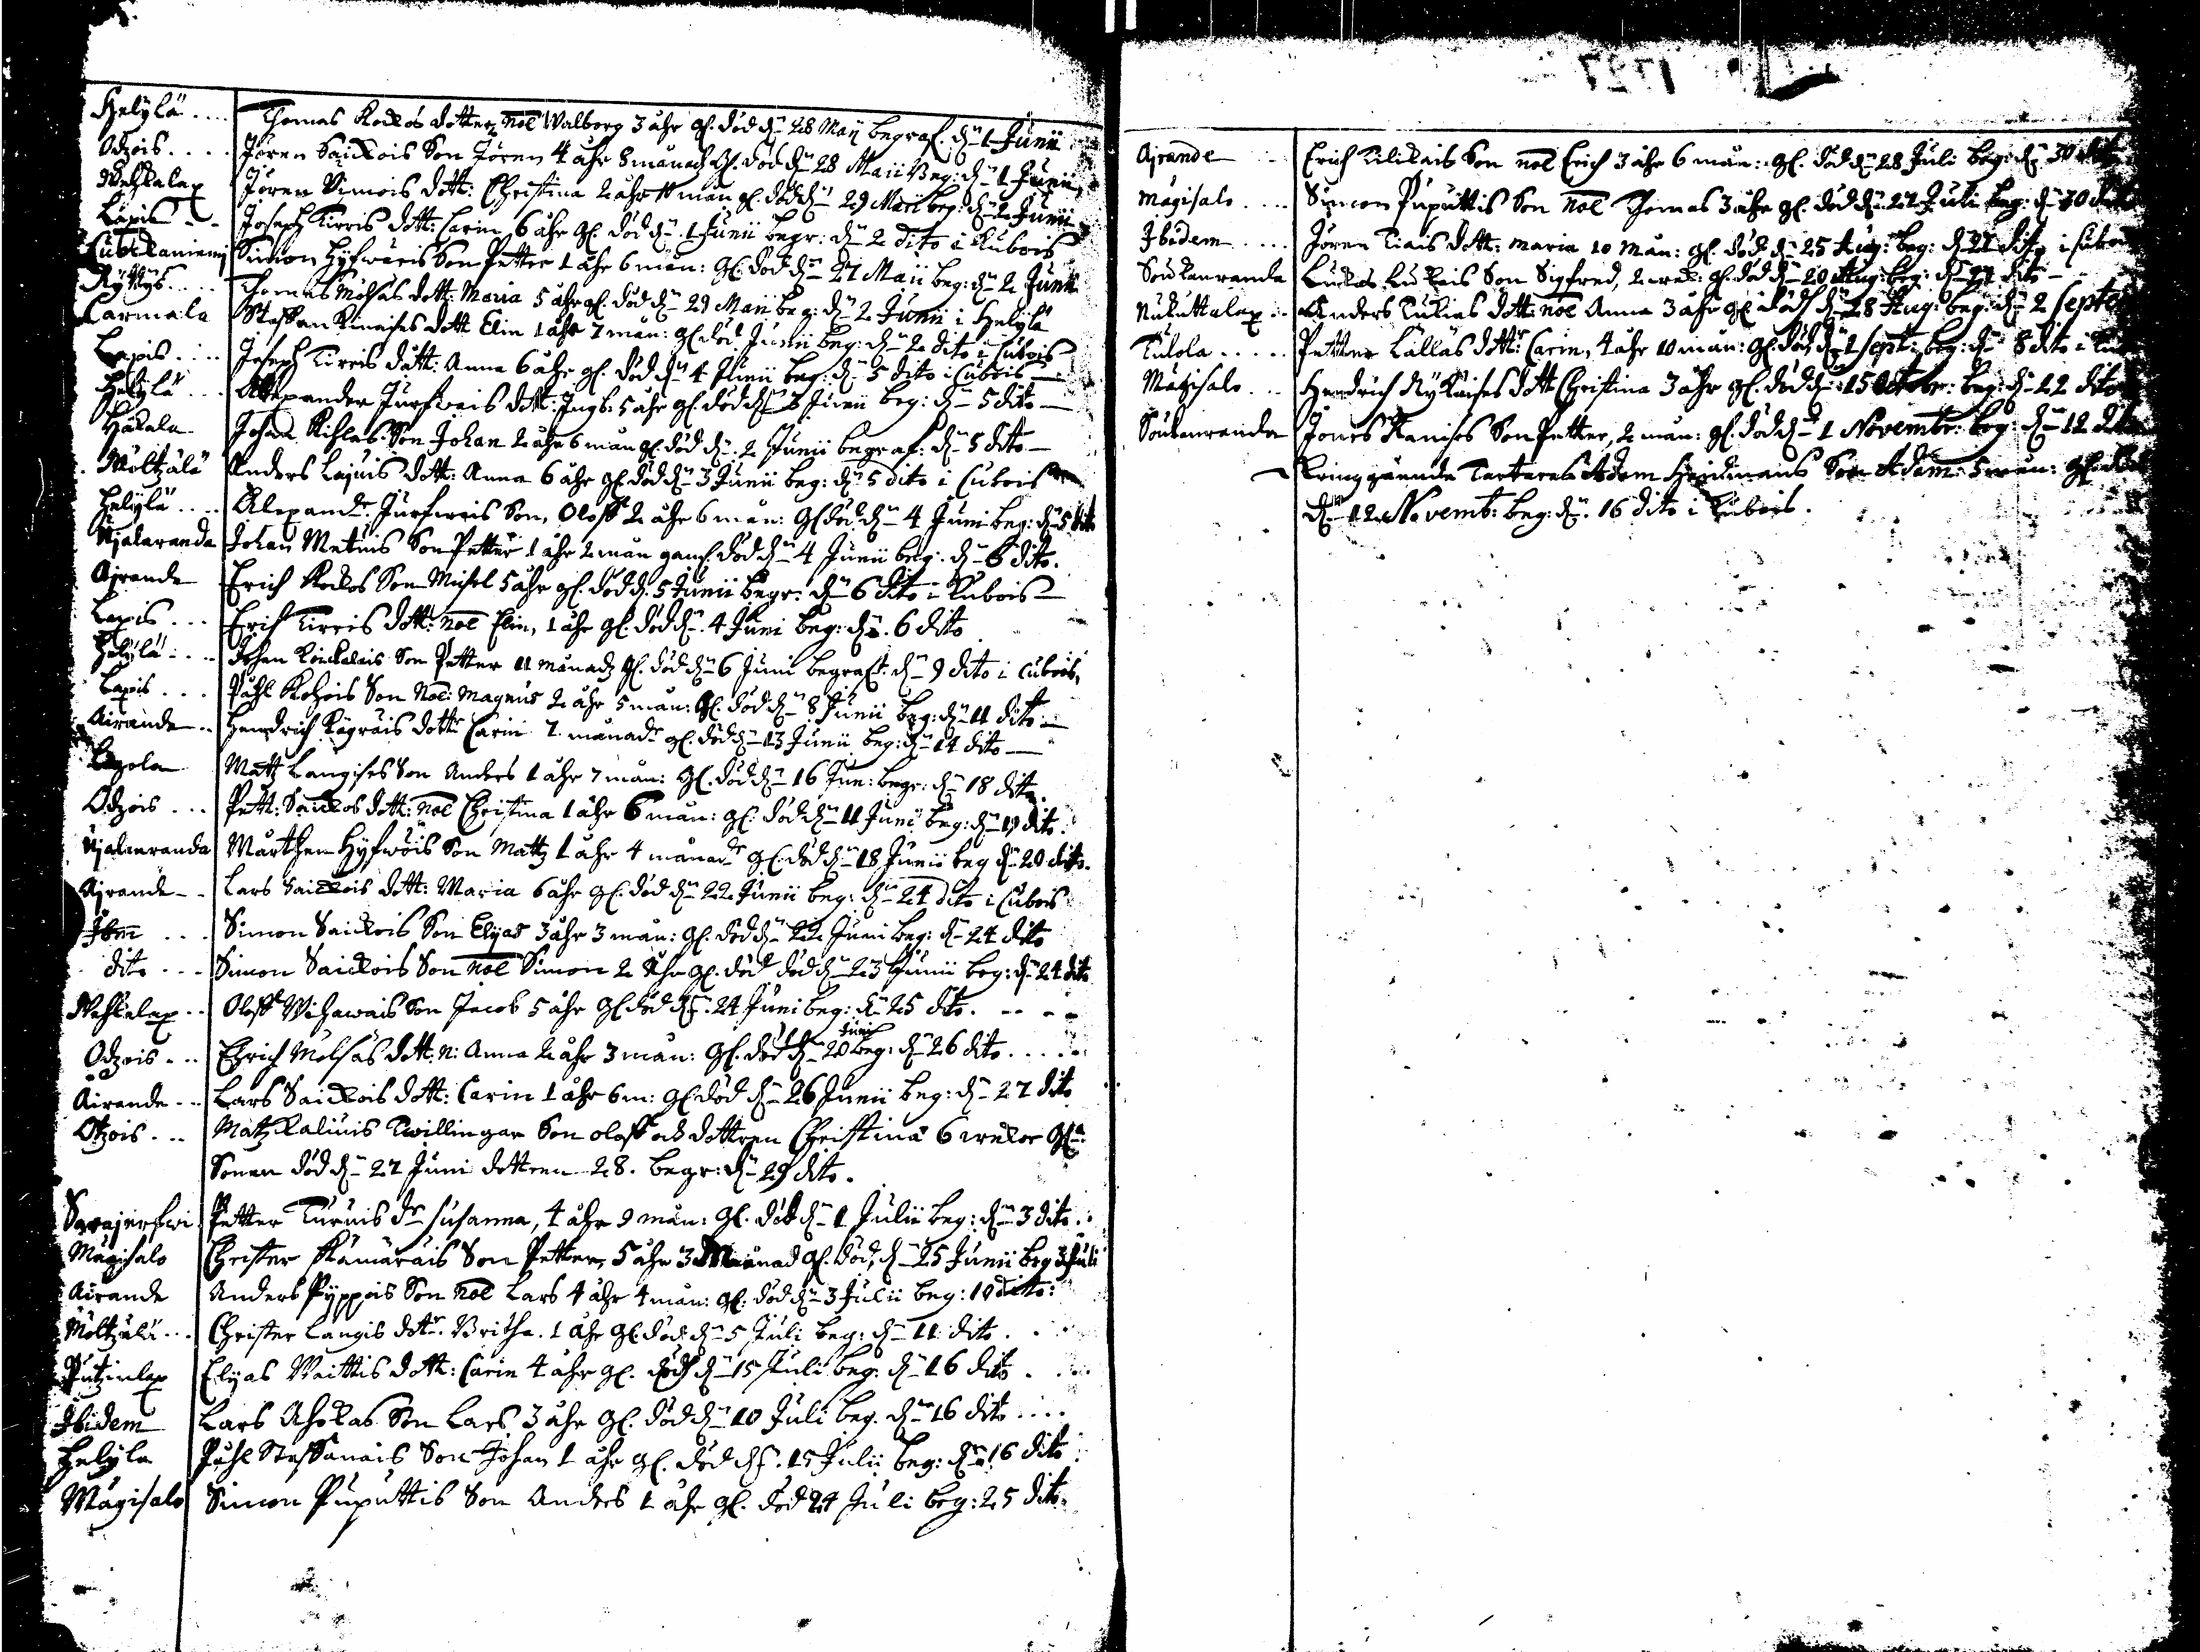 Helylä .... Thomas Kockos dotter nol Walborg 3 åhr gl. död d. 28 Maij begraf. d. 1 Junii
Odzois .... Jören Saickois Son Jören 4 åhr 8 månad gl. död d. 28 Maii Beg: d. 1 Junii
Wehkalax Jören Simois dott: Christina 2 åhr män gl. död d. 29 Maii beg: d. 2 Junii
Läxis - - Joseph Kirris dott: Carin 6 åhr gl. död d. 1 Junii begr: d. 2 dito i Kubois
Simon Hyfwäris Son Petter 1 åhr 6 mån: gl. död d. 27 Maii beg: d. 2 Junii
Ryttys .... Thomas Mölsäs dott: Maria 5 åhr gl. död d. 29 Maii beg: d. 2 Junii i Helylä
Carmala Staffan Kinaises dott Elin 1 åhr 7 mån: gl. död Junii beg: d. 2 dito i Cubois
Läxis .... Joseph Kirris dått: Anna 6 åhr gl. död d. 4 Junii beg: d. 5 dito i Cubois
Helylä ... Allexander Jurfwais dott: Ingb: 5 åhr gl. död d. 3 Junii beg: d. 5 dito
Hakala Johan Kihlas Son Johan 2 åhr 6 mån gl. död d. 2 Junii begraf: d. 5 dito
Möltzälä Anders Lajuis dott: Anna 6 åhr gl. död d. 3 Junii beg: d. 5 dito i Cubois
Helylä .... Alexand: Jurfweis Son, Oloff 2 åhr 6 mån: gl. död d. 4 Juni beg: d. 5 dito
Kjalaranda Johan Metuis Son Petter 1 åhr 2 mån gaml död d. 4 Junii beg: d. 6 dito.
Ajrande Erich Kockos Son Michel 5 åhr gl. död d. 5 Junii begr: d. 6 dito i Kubois
Läxis ... Erich Kirris dott: nol Elin, 1 åhr gl. död d. 4 Juni beg: d. 6 dito
Helylä .... Johan Son Petter 11 månadz gl. död d. 6 Juni begraft: d. 9 dito i Cubois,
Läxis ... Påhl Kohois Son Nol: Magnus 2 åhr 5 mån: gl. död d. 8 Junii beg: d. 11 dito
Airande .. Hendrich Kägräis dott Carin 7. månad gl. död d. 13 Junii beg: d. 14 dito
Matz Langises Son Anders 1 åhr 7 mån: gl. död d. 16 Jun: begr: d. 18 dito.
Odzois ... Pett: Saickos dott: nol Christina 1 åhr 6 mån: gl. död d. 11 Junii beg: d. 19 dito.
Kjalaranda Mårthen Hyfwöis Son Mattz 1 åhr 4 månad gl. död d. 18 Junii beg d. 20 dito.
Ajrande - - Lars Saickois dott: Maria 6 åhr gl. död d. 22 Junii beg: d. 24 dito i Cubois
Ibm ... Simon Saickois Son Elyas 3 åhr 3 mån: gl. död d. 22 Juni beg: d. 24 dito
dito ... Simon Saickois Son nol Simon 2 åhr gl. död död d. 23 Junii beg: d. 24 dito
Wehkalax .. Oloff Wihawais Son Jacob 5 åhr gl. död d. 24 Juni beg: d. 25 dto.
Odzois ... Ehrich Mölsäs dott. n: Anna 2 åhr 3 mån: gl. död d. 20 Junii beg: d. 26 dito ....
Airande ... Lars Saickois dott: Carin 1 åhr 6 m: gl. död d. 26 Junii beg: d. 27 dito
Otzois ... Matz Kaliuis Twillingar Son oloff och dottren Christina 6 wekor gl:
Sonen död d. 27 Juni dottren 28. begr: d. 29 dito.
Sarajerfwi Petter Kuruis dr susanna, 4 åhr 9 mån: gl. död d. 1 Julii beg: d. 3 dito.
Mägisalo Christer Kämäräis Son Petter, 5 åhr 3 Månad gl. död, d. 25 Junii beg 3 Juli
Airande Anders Pyppöis Son nol Lars 4 åhr 4 mån: gl: död d. 3 Julii beg: 10 dito:
Möltzälä ... Christer Langis dott. Britha. 1 åhr gl. död: d. 5 Juli beg: d. 11 dito.
Putzinlax Elyas Waittis dott: Carin 4 åhr gl. död d. 15 Juli beg: d. 16 dito.
Ibidem Lars Ahokas Son Lars 3 åhr gl. död d. 10 Juli beg. d. 16 dito ...
Helyla Påhl Staffanais Son Johan 1 åhr gl. död d. 15 Julii beg: d. 16 dito:
Mägisalo Simon Puputtis Son Anders 1 åhr gl. död 24 Juli beg: 25 dito.
1727
Ajrande Erich Kilikais Son nol Erich 3 åhr 6 mån: gl. död d. 28 Juli beg: d. 30 dito
Mägisalo .... Simon Puputtis Son Nol Thomas 3 åhr gl. död d. 27 Juli beg: d. 30 dito
Ibidem .... Jören Kiais dott. maria 10 Mån: gl. död d. 25 Aug: beg: d. 27 dito i
Soukanranda Lukas Lukais Son Sigfred, 2 wek: gl. död d. 20 Aug: beg: d. 27 dito
Nukuttalax .. Anders Kukias dott: nol Anna 3 åhr gl. död d. 28 Aug: beg: d. 2 Septe
Tulola ..... Petter Lallas dott: Carin, 4 åhr 10 mån: gl. död d. 1 Sept: beg: d. 8 dito i
Mägisalo ... Hendrich dott Christina 3 åhr gl. död d. 15 October: beg: d. 22 dito
Soukanranda Jöns Kanises Son Petter, 2 mån: gl. död d. 1 Novembr: beg: d. 12 dito
Kringgående Tartaren Adam Heidmans Son Adam 5 mån: gl. död
d. 12 Novemb: beg: d. 16 dito i Kubois.